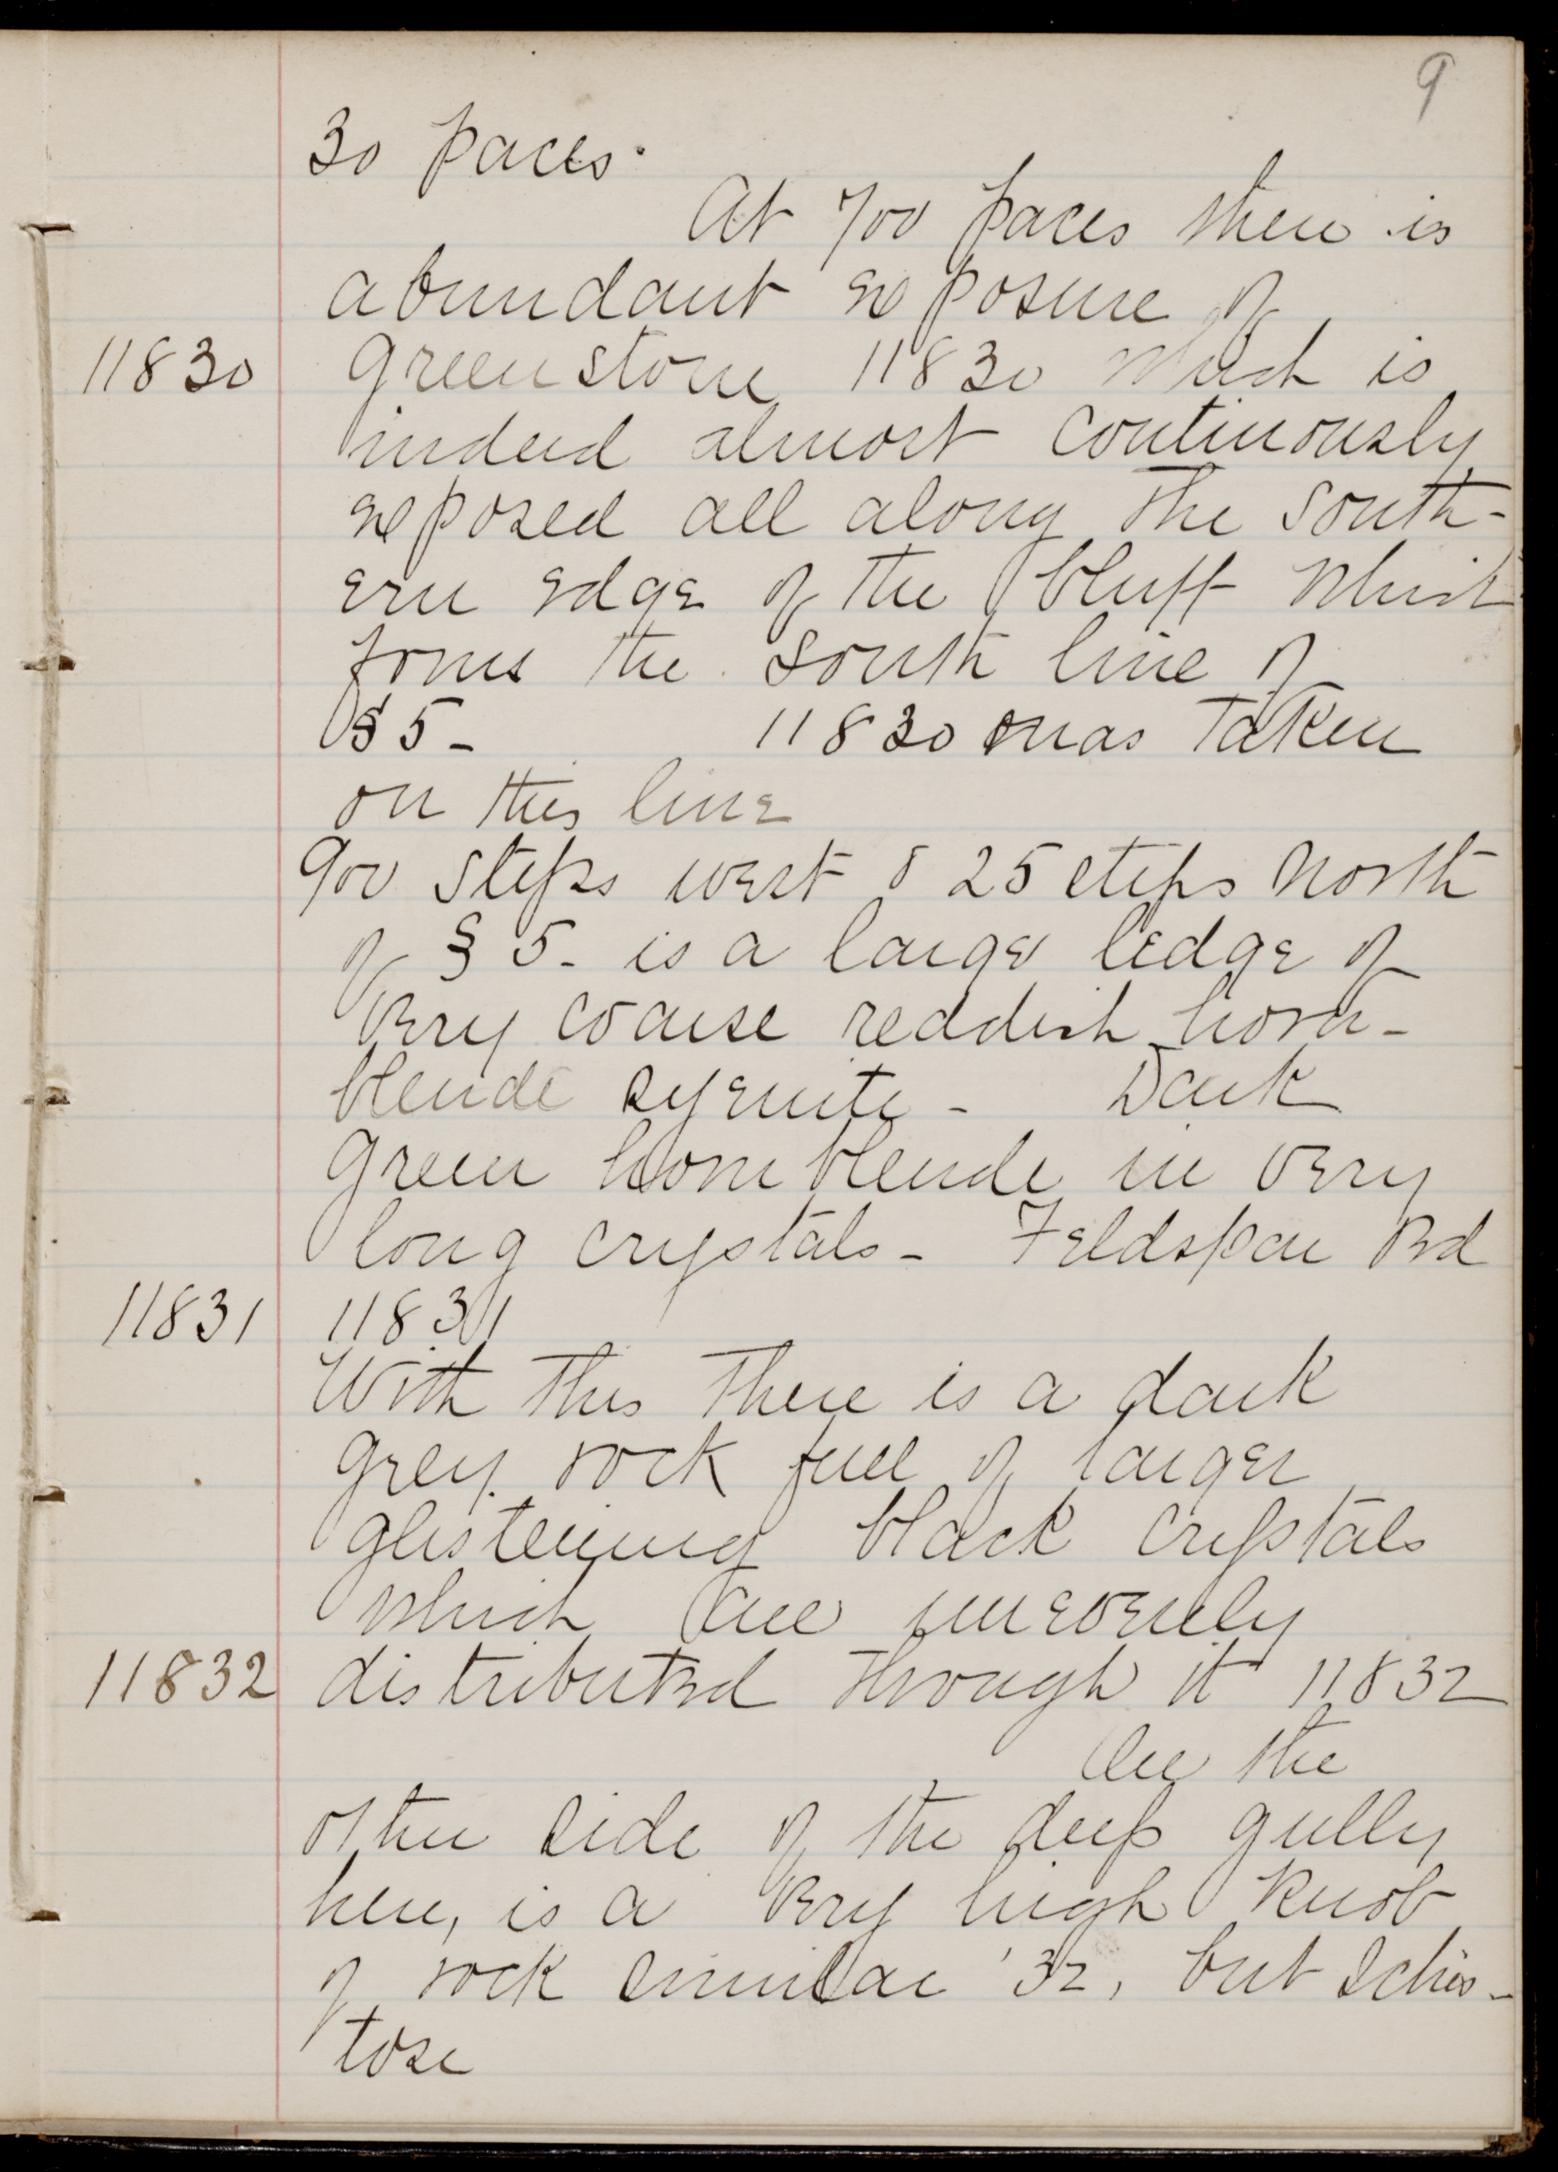 9
30 paces.
At 700 paces there is
abundant exposure of
11830 greenstone 11830 which is
indeed almost continuously
exposed all along the south-
ern edge of the bluff which
forms the south line of
§ 5- 11830 was taken
on this line
900 steps west & 25 steps north
of § 5- is a large ledge of
very coarse reddish horn-
blende syenite - Dark
green hornblende in very
long crystals - Feldspar Red
11831 11831
With this there is a dark
grey rock full of larger
glistening black crystals
which are unevenly
11832 distributed through it 11832
On the
other side of the deep gully
here, is a very high knob
of rock similar '32, but schis-
tose